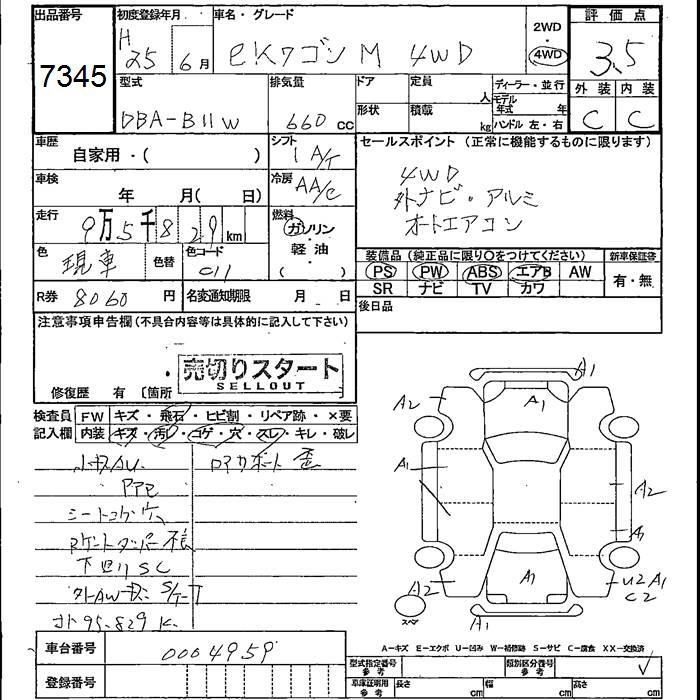 出品番号
7345
初度登録年月
H 25 6月
車名・グレード
eKワゴン M 4WD
2WD・
4WD
評価点
3.5
外装 内装
C C
型式
DBA-B11W
排気量
660 CC
ドア
定員
人
形状
積載
kg
ディーラー・並行
モデル年式 年
ハンドル 左・右
車歴
自家用・( )
シフト
A/T
車検
年 月( 日)
冷房
AA/C
走行
9万5千829 km
燃料
ガソリン・
軽油
( )
色
現車
色替
色コード
C11
R券 8060 円
名変通知期限 月 日
セールスポイント (正常に機能するものに限ります)
4WD
外ナビ・アルミ
オートエアコン
装備品(純正品に限り○をつけてください)
PS PW ABS エアB AW
SR ナビ TV カワ
新車保証書
有・無
後日品
注意事項申告欄(不具合内容等は具体的に記入して下さい)
売切りスタート
SELLOUT
修復歴 有 〔箇所
検査員
記入欄
FW キズ・飛石・ヒビ割・リペア跡・×要
内装 キズ・汚レ・コゲ・穴・スレ・キレ・破レ
小キズAU
シートコゲ穴
下回りSC
外AW
オト95.829K
歪
A1
A2
A1
A1
A2
A1
A2
A1
U2 A1
C2
A1
スペア
A-キズ E-エクボ U-凹み W-補修跡 S-サビ C-腐食 XX-交換済
車台番号
0004959
登録番号
型式指定番号
参考
類別区分番号
参考
車庫証明用
参考
長さ cm
幅 cm
高さ cm